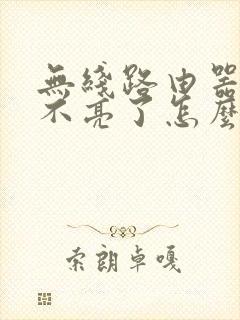 無綫路由器
不亮了怎麽
索朗卓嘎